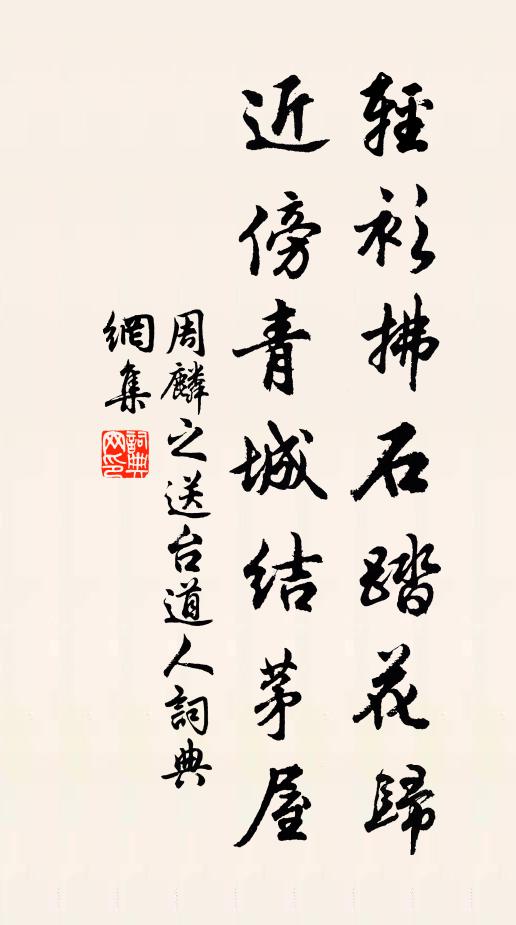 輕衫拂石踏花歸
近傍青城結茅屋
周麟之送台道人詞典
網集
詞典網印